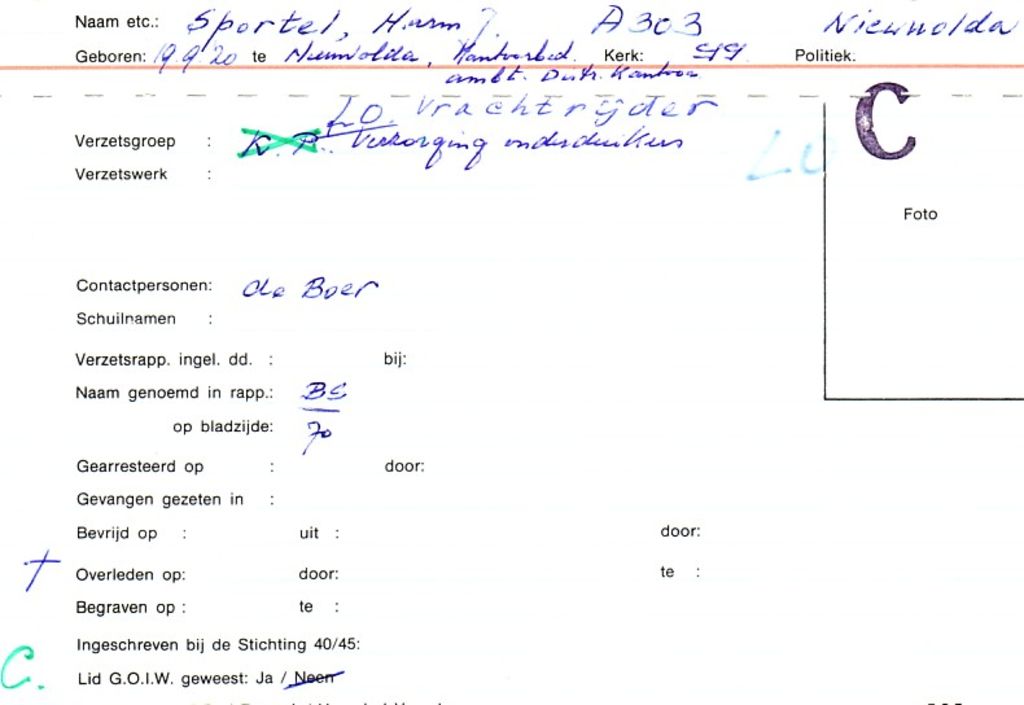 Naam etc.: Sportel, Harm J. A303 Nieuwolda
Geboren: 19.9.20 te Nieuwolda, Kantoorbed. Kerk: Politiek:
ambt. Distr. Kantoor
LO. Vrachtrijder
Verzetsgroep : K.P. Verzorging onderduikers LO
C
Verzetswerk :
Foto
Contactpersonen: de Boer
Schuilnamen :
Verzetsrapp. ingel. dd. : bij:
Naam genoemd in rapp.: BS
op bladzijde: 70
Gearresteerd op : door:
Gevangen gezeten in :
Bevrijd op : uit : door:
Overleden op: door: te :
Begraven op : te :
Ingeschreven bij de Stichting 40/45:
C. Lid G.O.I.W. geweest: Ja / Neen